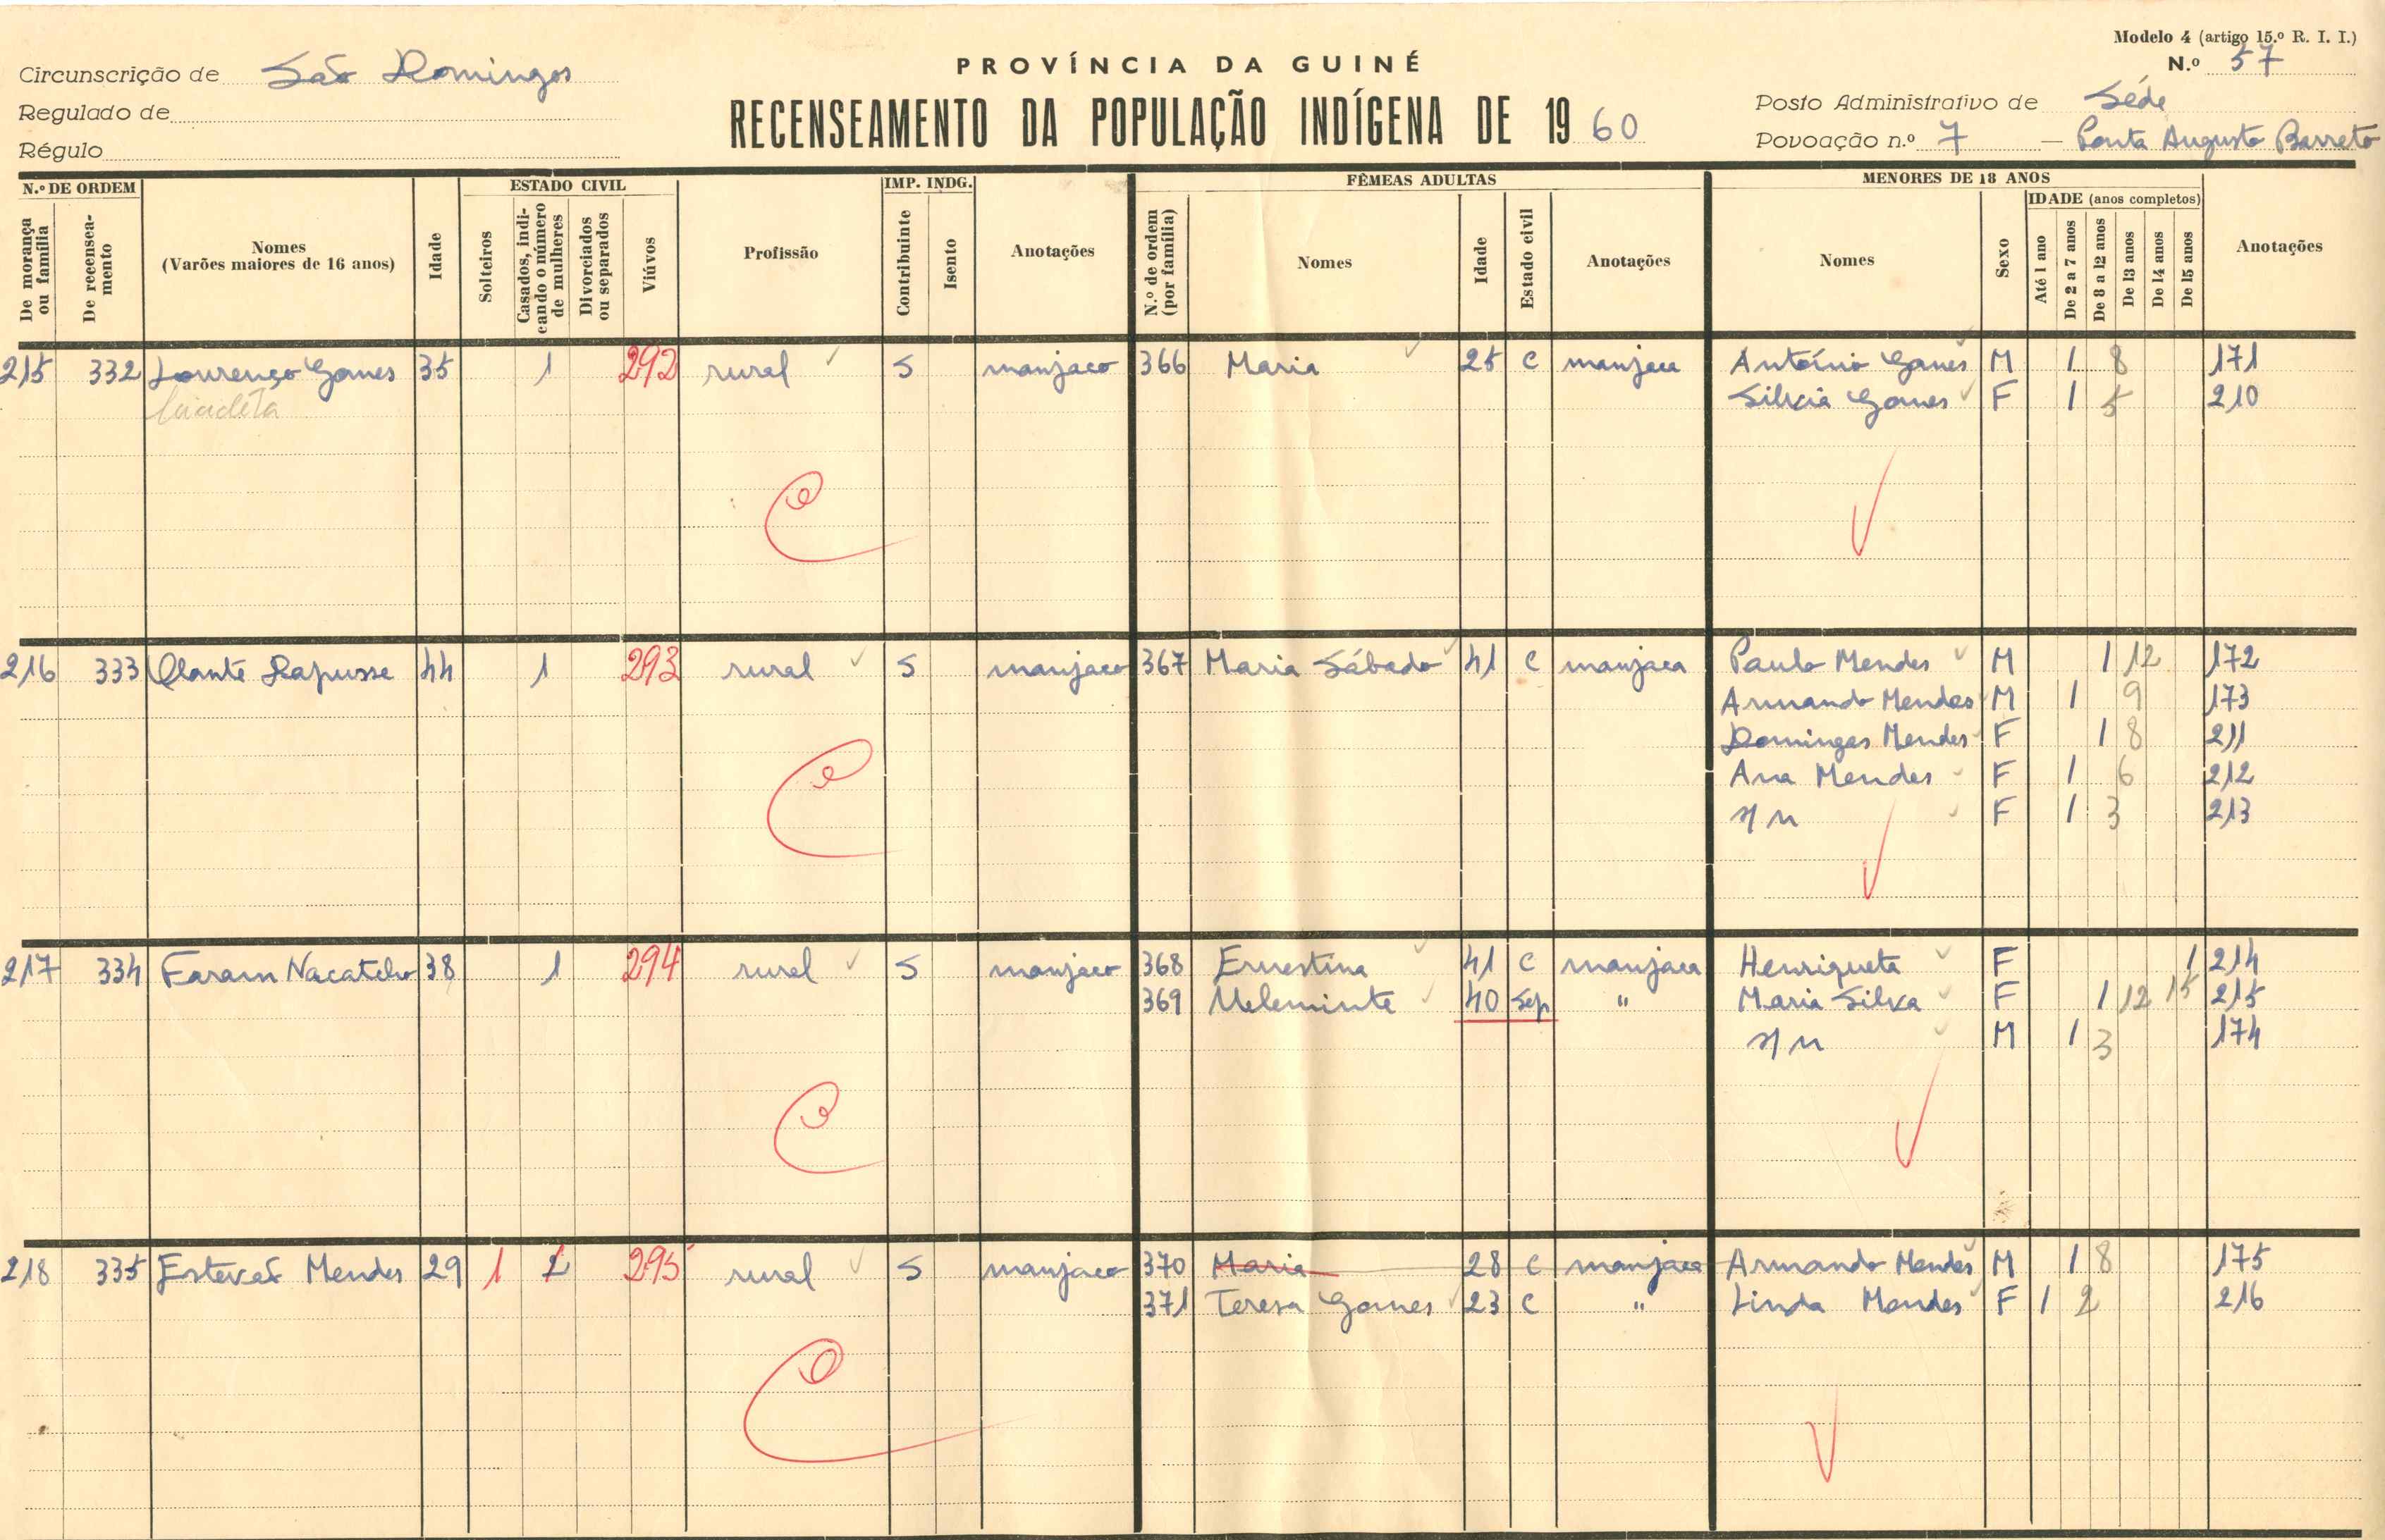 Modelo 4 (artigo 15.º R. I. I.)
Circunscrição de São Domingos
PROVÍNCIA DA GUINÉ
N.º 57
Regulado de
RECENSEAMENTO DA POPULAÇÃO INDÍGENA DE 1960
Posto Administrativo de Séde
Régulo
Povoação n.º 7 — Ponta Augusto Barreto
N.º DE ORDEM
ESTADO CIVIL
IMP. INDG.
FÊMEAS ADULTAS
MENORES DE 18 ANOS
De morança ou família
De recenseamento
Nomes
(Varões maiores de 16 anos)
Idade
Solteiros
Casados, indicando o número de mulheres
Divorciados ou separados
Viúvos
Profissão
Contribuinte
Isento
Anotações
N.º de ordem (por família)
Nomes
Idade
Estado civil
Anotações
Nomes
Sexo
IDADE (anos completos)
Até 1 ano
De 2 a 7 anos
De 8 a 12 anos
De 13 anos
De 14 anos
De 15 anos
Anotações
215 332 Lourenço Gomes 35 1 292 rural S manjaco 366 Maria 25 C manjaca António Gomes M 1 8 171
Silvia Gomes F 1 5 210
216 333 Rapusse 44 1 293 rural S manjaco 367 Maria Sábado 41 C manjaca Paulo Mendes M 1 12 172
Armando Mendes M 1 9 173
Domingas Mendes F 1 8 211
Ana Mendes F 1 6 212
s/n F 1 3 213
217 334 Faram Nacatcho 38 1 294 rural S manjaco 368 Ernestina 41 C manjaca Henriqueta F 1 214
369 40 Sep " Maria Silva F 1 12 15 215
s/n M 1 3 174
218 335 Estevaõ Mendes 29 1 2 295 rural S manjaco 370 Maria 28 C manjaca Armando Mendes M 1 8 175
371 Teresa Gomes 23 C " Linda Mendes F 1 2 216